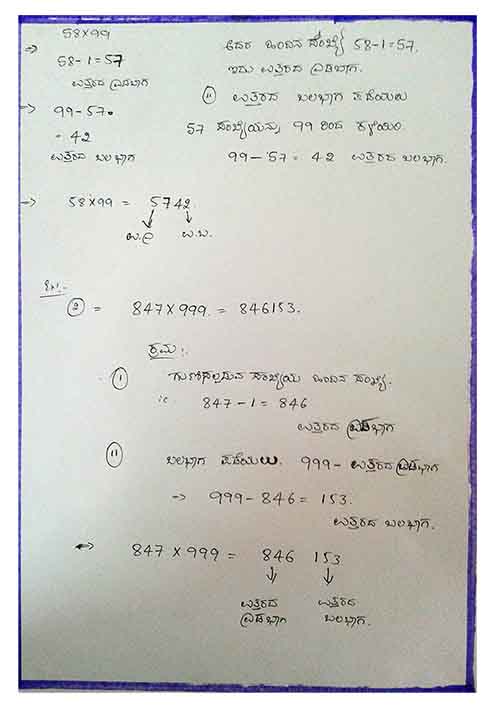 58×99
⇒ 58-1=57
ಉತ್ತರದ ಎಡಭಾಗ
→ 99-57.
= 42
ಉತ್ತರದ ಬಲಭಾಗ
ಅದರ ಹಿಂದಿನ ಸಂಖ್ಯೆ 58-1=57.
ಇದು ಉತ್ತರದ ಎಡಭಾಗ.
(ii) ಉತ್ತರದ ಬಲಭಾಗ ಪಡೆಯಲು
57 ಸಂಖ್ಯೆಯನ್ನು 99 ರಿಂದ ಕಳೆಯಿರಿ
99-57 = 42 ಉತ್ತರದ ಬಲಭಾಗ.
→ 58×99 = 5742.
ಉ.ಎ ಉ.ಬ.
ಉದಾ:-
② = 847×999 = 846153.
ಕ್ರಮ:
(i) ಗುಣಿಸಲ್ಪಡುವ ಸಂಖ್ಯೆಯ ಹಿಂದಿನ ಸಂಖ್ಯೆ.
ie 847-1=846
ಉತ್ತರದ ಎಡಭಾಗ
(ii) ಬಲಭಾಗ ಪಡೆಯಲು 999- ಉತ್ತರದ ಎಡಭಾಗ
→ 999-846 = 153.
ಉತ್ತರದ ಬಲಭಾಗ.
⇒ 847×999 = 846 153
ಉತ್ತರದ ಉತ್ತರದ
ಎಡಭಾಗ ಬಲಭಾಗ.